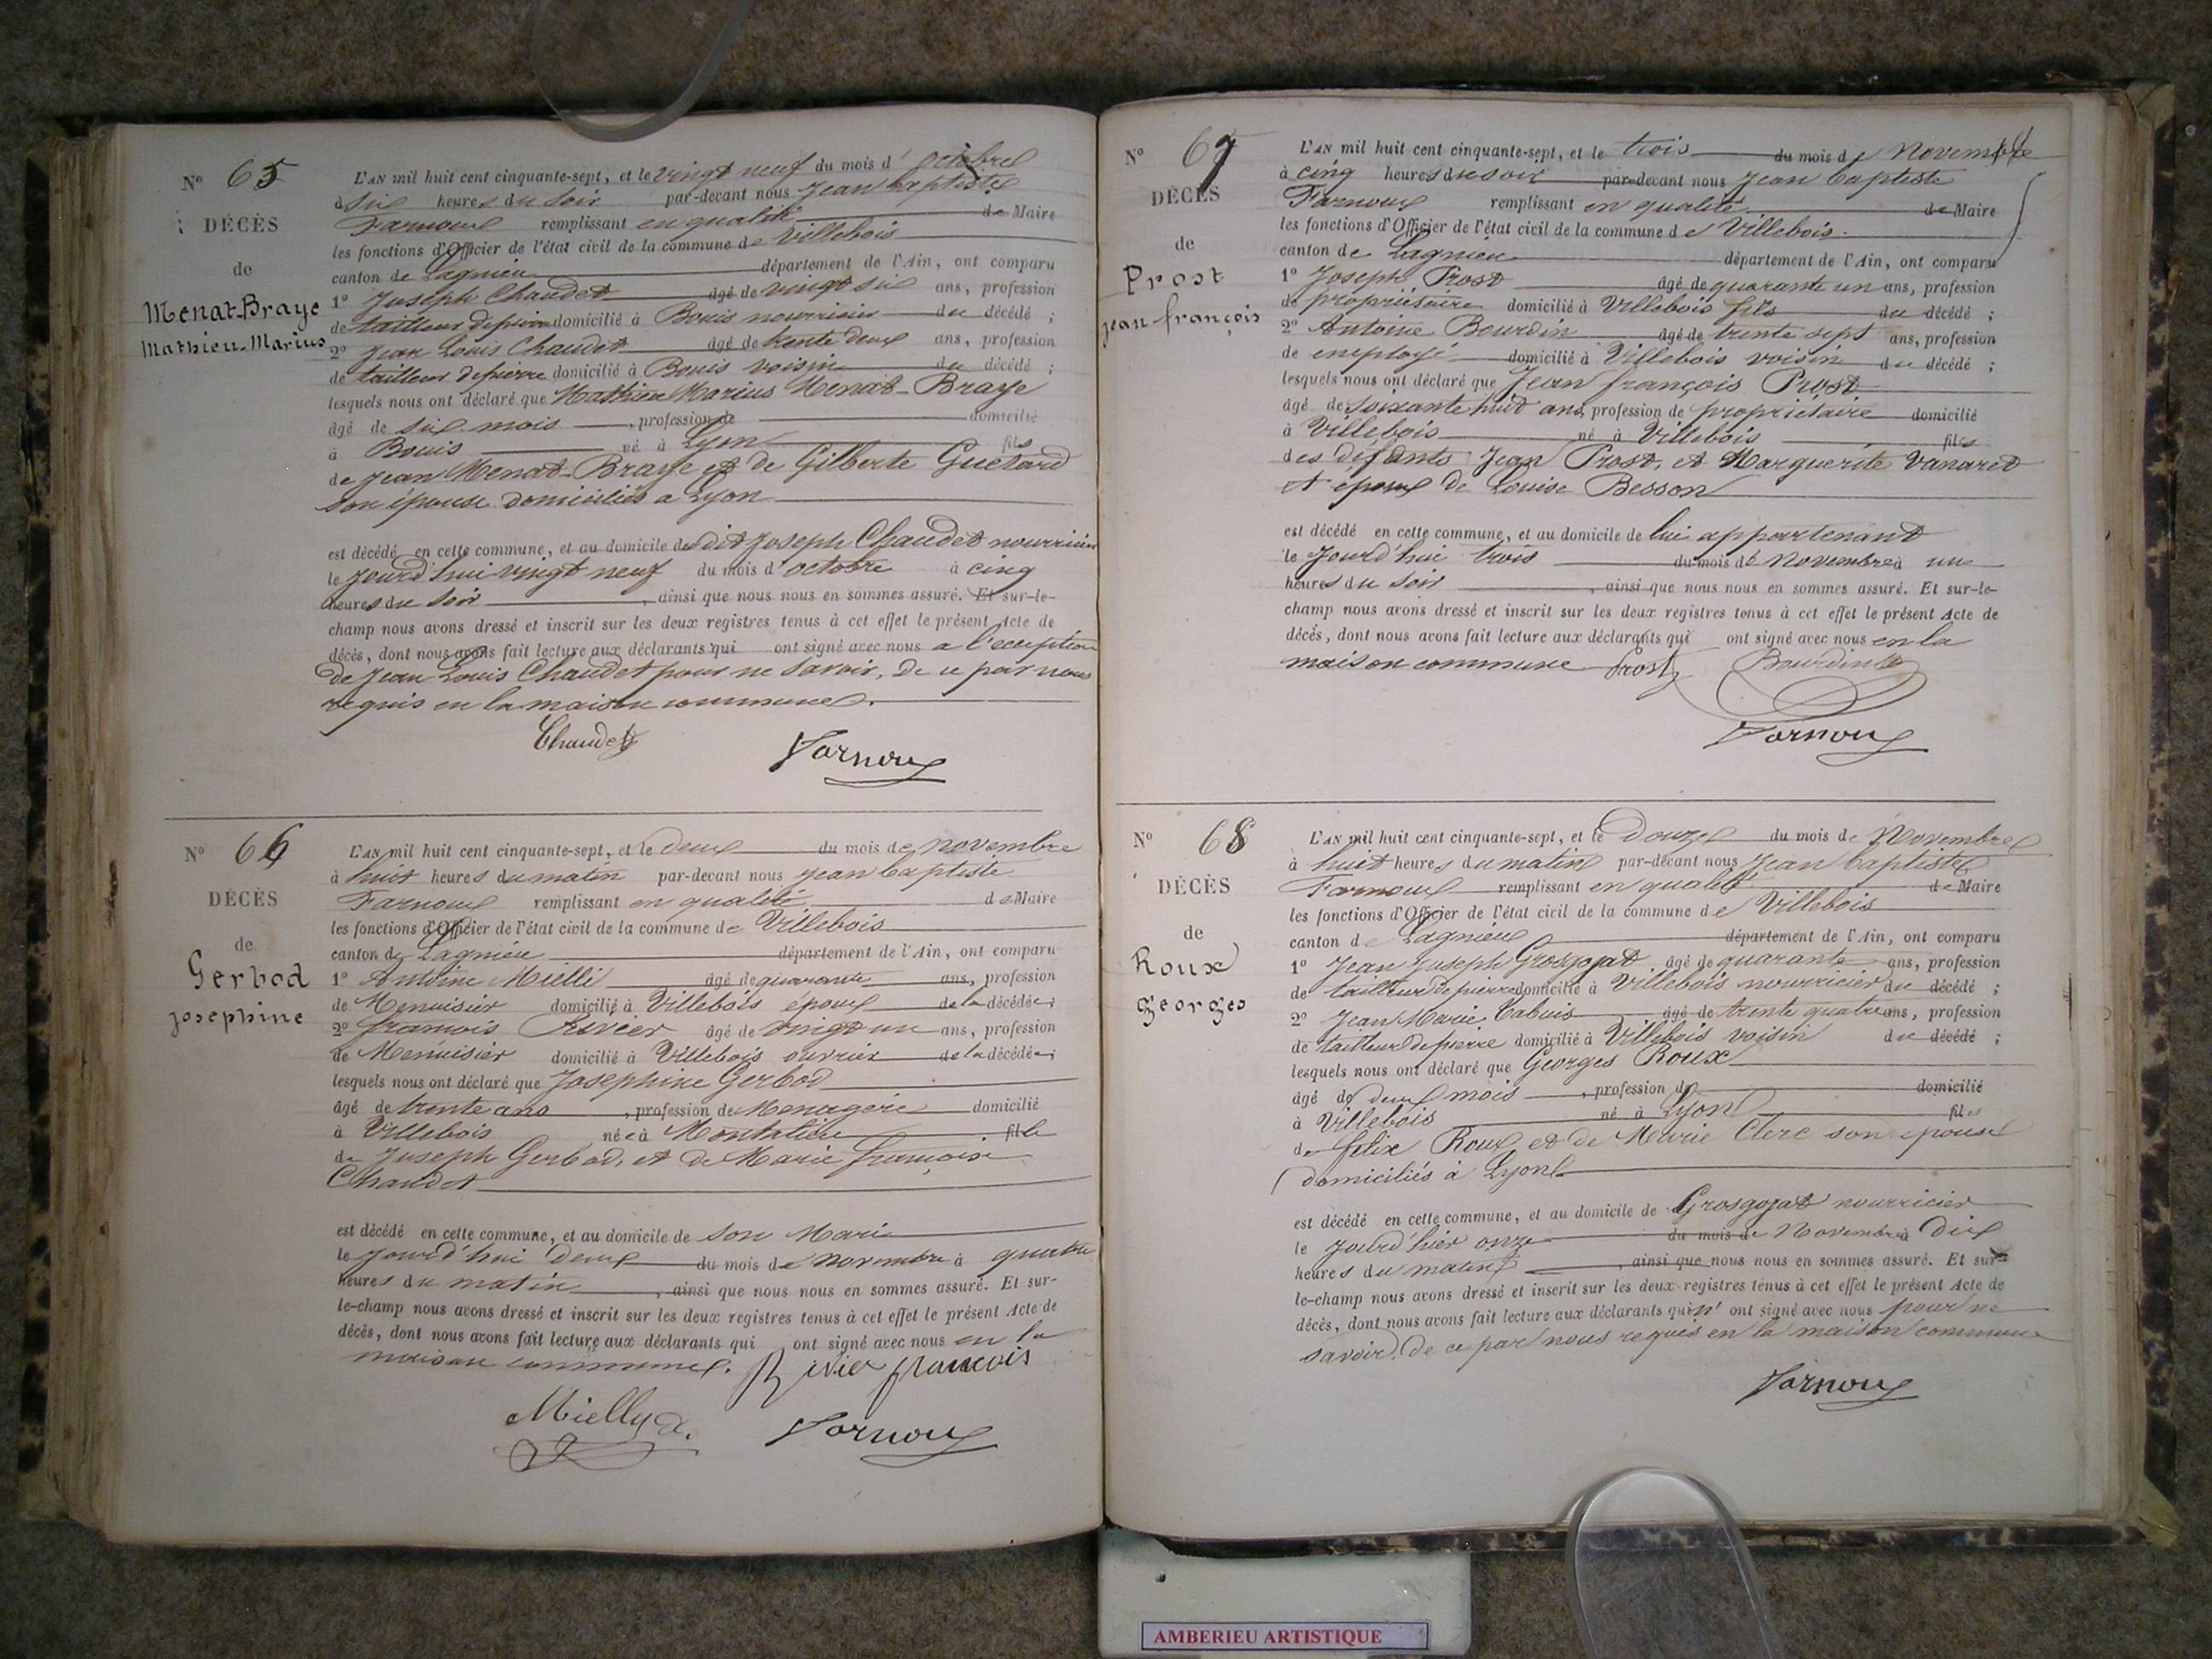 N° 65
DÉCÈS
de
Menat-Braye
Mathieu-Marius
L'AN mil huit cent cinquante-sept, et le vingt neuf du mois d'octobre
à six heures du soir par-devant nous Jean baptiste
Farnoux remplissant en qualité de Maire
les fonctions d'Officier de l'état civil de la commune de Villebois
canton de Lagnieu département de l'Ain, ont comparu
1° Joseph Chaudet âgé de vingt six ans, profession
de tailleur de pierre domicilié à Bouis nourricier du décédé ;
2° Jean Louis Chaudet âgé de trente deux ans, profession
de tailleur de pierre domicilié à Bouis voisin du décédé ;
lesquels nous ont déclaré que Mathieu Marius Menat-Braye
âgé de six mois, profession de domicilié
à Bouis né à Lyon fils
de Jean Menat-Braye et de Gilberte Guetard
son épouse domiciliés a Lyon
est décédé en cette commune, et au domicile dudit Joseph Chaudet nourricier
le jourd'hui vingt neuf du mois d'octobre à cinq
heures du soir, ainsi que nous nous en sommes assuré. Et sur-le-
champ nous avons dressé et inscrit sur les deux registres tenus à cet effet le présent Acte de
décès, dont nous avons fait lecture aux déclarants qui ont signé avec nous a l'eception
de Jean Louis Chaudet pour ne savoir, de ce par nous
requis en la maison commune.
Chaudet Farnoux
N° 66
DÉCÈS
de
Gerbod
josephine
L'AN mil huit cent cinquante-sept, et le deux du mois de novembre
à huit heures du matin par-devant nous jean baptiste
Farnoux remplissant en qualité de Maire
les fonctions d'Officier de l'état civil de la commune de Villebois
canton de Lagnieu département de l'Ain, ont comparu
1° Antoine Mielli âgé de quarante ans, profession
de Menuisier domicilié à Villebois époux de la décédée ;
2° françois Rivier âgé de vingt un ans, profession
de Menuisier domicilié à Villebois ouvrier de la décédée ;
lesquels nous ont déclaré que Josephine Gerbod
âgé de trente ans, profession de Menagère domicilié
à Villebois née à Montalieu fille
de Joseph Gerbod, et de Marie françoise
Chaudet
est décédé en cette commune, et au domicile de son Mari
le jourd'hui deux du mois de novembre à quatre
heures du matin, ainsi que nous nous en sommes assuré. Et sur-
le-champ nous avons dressé et inscrit sur les deux registres tenus à cet effet le présent Acte de
décès, dont nous avons fait lecture aux déclarants qui ont signé avec nous en la
maison commune. Rivier francois
Mielly a. Farnoux
N° 67
DÉCÈS
de
Prost
jean françois
L'AN mil huit cent cinquante-sept, et le trois du mois de Novembre
à cinq heures du soir par-devant nous Jean baptiste
Farnoux remplissant en qualité de Maire
les fonctions d'Officier de l'état civil de la commune de Villebois
canton de Lagnieu département de l'Ain, ont comparu
1° Joseph Prost âgé de quarante un ans, profession
de propriétaire domicilié à Villebois fils du décédé ;
2° Antoine Bourdin âgé de trente sept ans, profession
de employé domicilié à Villebois voisin du décédé ;
lesquels nous ont déclaré que Jean françois Prost
âgé de soixante huit ans, profession de propriétaire domicilié
à Villebois né à Villebois fils
des défunts Jean Prost, et Marguerite Vanaret
et époux de Louise Besson
est décédé en cette commune, et au domicile de lui appartenant
le jourd'hui trois du mois de Novembre à une
heures du soir, ainsi que nous nous en sommes assuré. Et sur-le-
champ nous avons dressé et inscrit sur les deux registres tenus à cet effet le présent Acte de
décès, dont nous avons fait lecture aux déclarants qui ont signé avec nous en la
maison commune Prost Bourdin
Farnoux
N° 68
DÉCÈS
de
Roux
georges
L'AN mil huit cent cinquante-sept, et le Douze du mois de Novembre
à huit heures du matin par-devant nous Jean baptiste
Farnoux remplissant en qualité de Maire
les fonctions d'Officier de l'état civil de la commune de Villebois
canton de Lagnieu département de l'Ain, ont comparu
1° Jean Joseph Grosgojat âgé de quarante ans, profession
de tailleur de pierre domicilié à Villebois nourricier du décédé ;
2° Jean Marie Cabuis âgé de trente quatre ans, profession
de tailleur de pierre domicilié à Villebois voisin du décédé ;
lesquels nous ont déclaré que Georges Roux
âgé de deux mois, profession de domicilié
à Villebois né à Lyon fils
de felix Roux et de Marie Clerc son épouse
domiciliés à Lyon
est décédé en cette commune, et au domicile de Grosgojat nourricier
le jourd'hier onze du mois de Novembre à Dix
heures du matin, ainsi que nous nous en sommes assuré. Et sur-
le-champ nous avons dressé et inscrit sur les deux registres tenus à cet effet le présent Acte de
décès, dont nous avons fait lecture aux déclarants qui n'ont signé avec nous pour ne
savoir, de ce par nous requis en la maison commune
Farnoux
AMBERIEU ARTISTIQUE